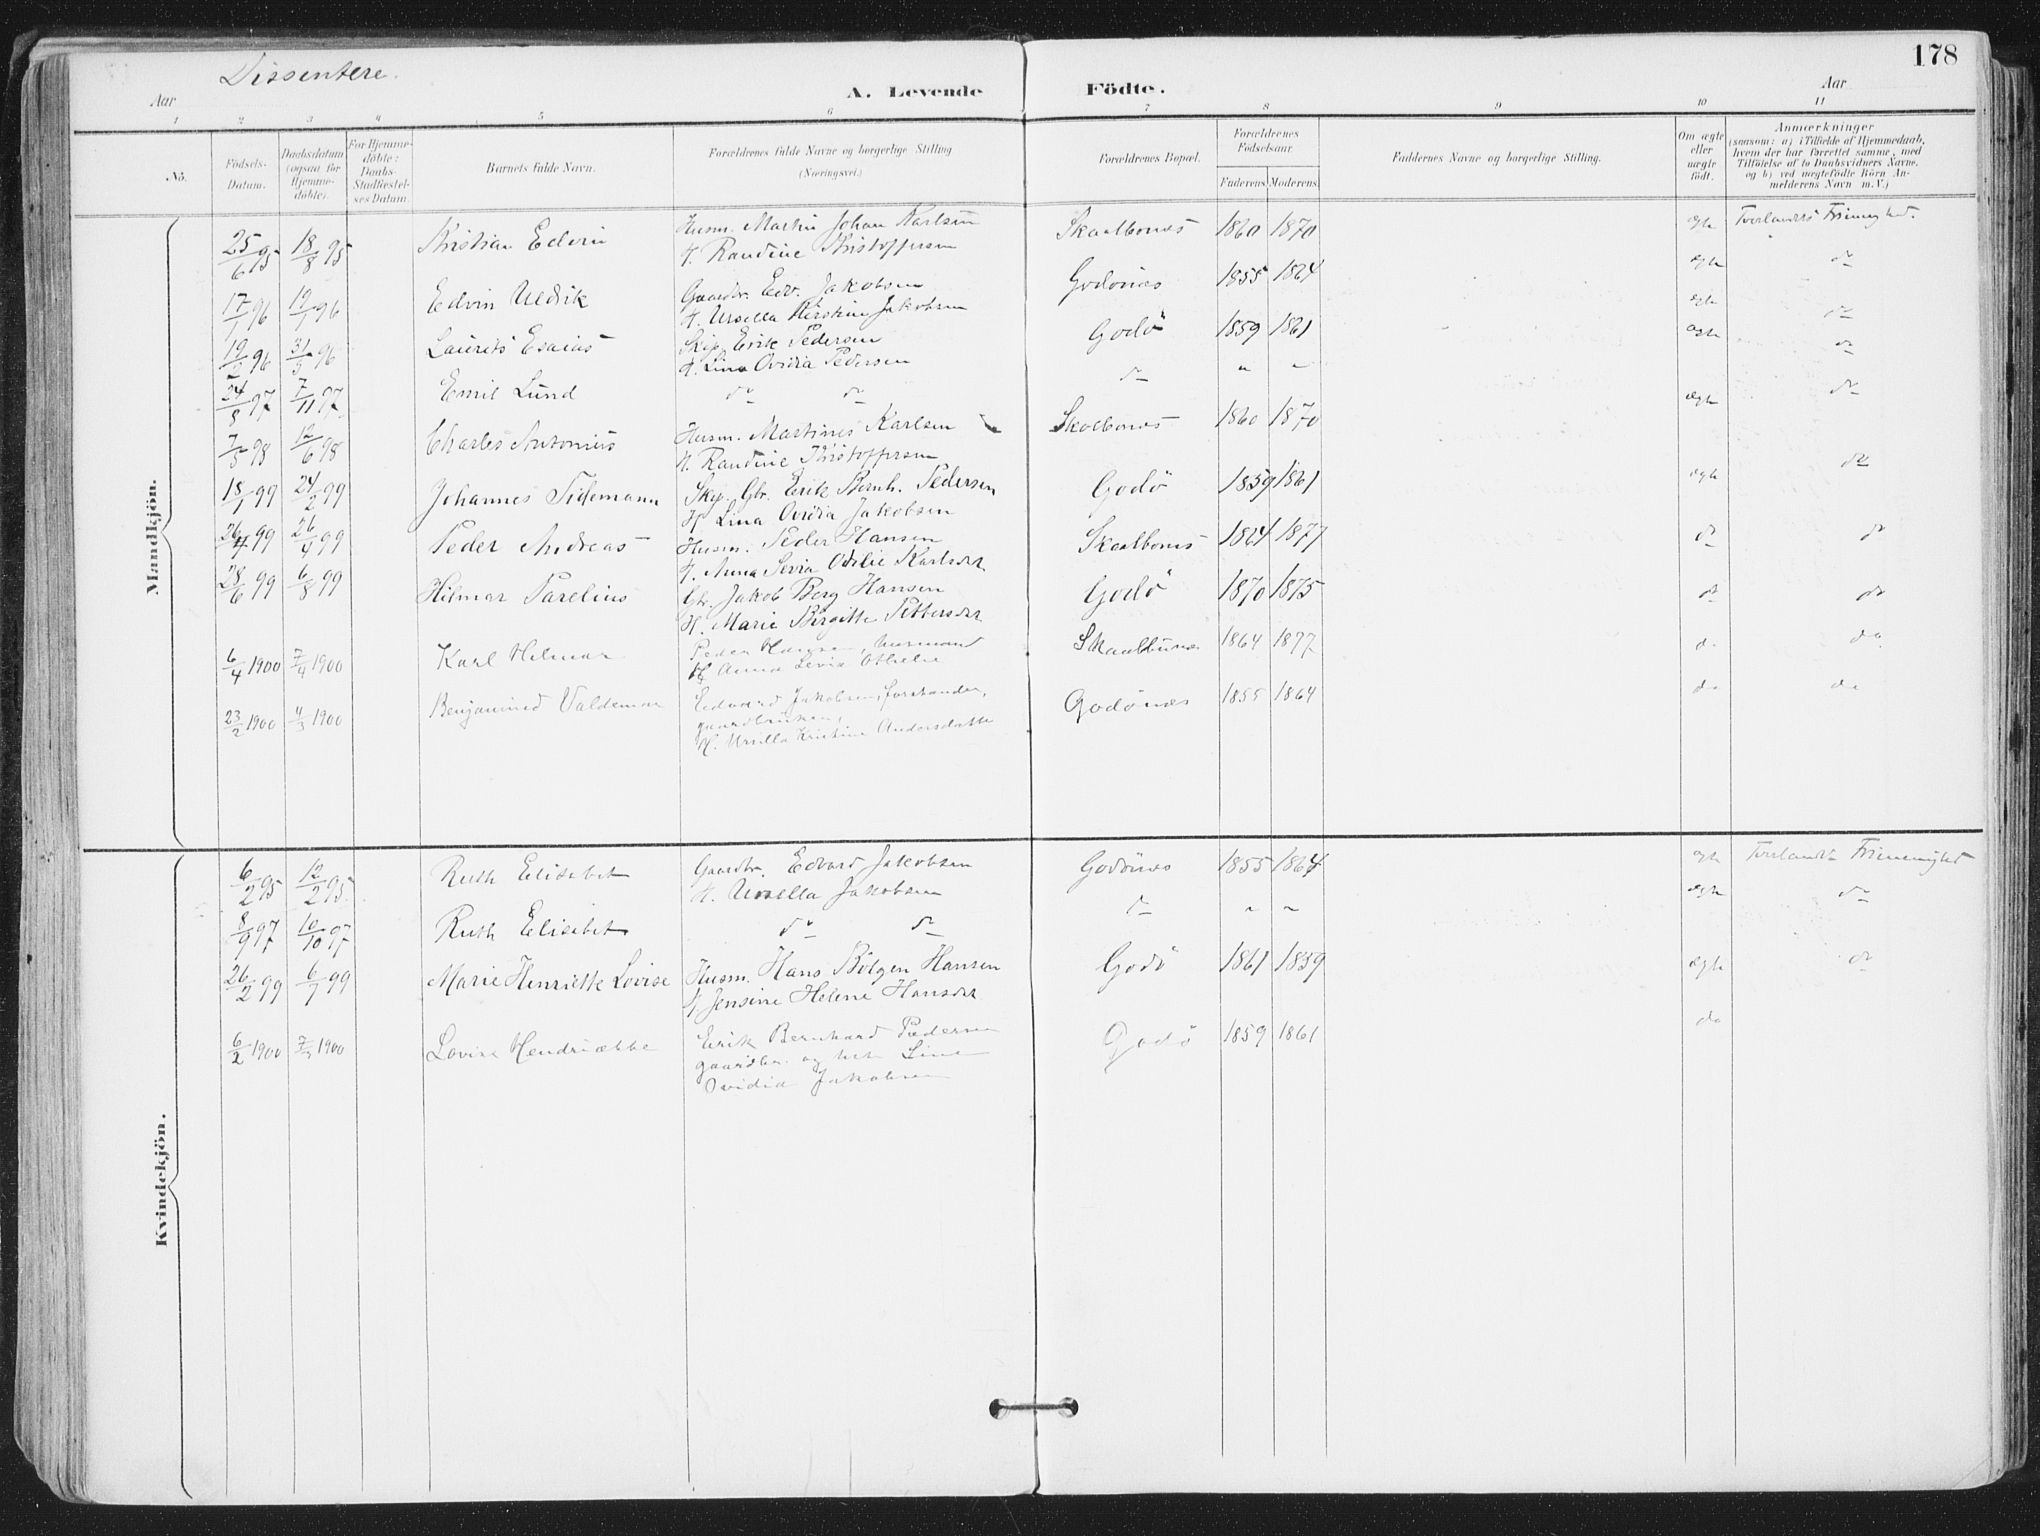 Dissentere.
178
Aar
A. Levende Födte.
Aar
1 2 3 4 5 6 7 8 9 10 11
No.
Födsels-Datum.
Daabsdatum (ogsaa for Hjemmedöbte).
For Hjemmedöbte: Daabs-Stadfæstelses Datum.
Barnets fulde Navn.
Forældrenes fulde Navne og borgerlige Stilling (Næringsvei.)
Forældrenes Bopæl.
Forældrenes Födselsaar.
Faderens. Moderens.
Faddernes Navne og borgerlige Stilling.
Om ægte eller uægte födt.
Anmærkninger
(saasom: a) i Tilfælde af Hjemmedaab, hvem der har forrettet samme, med Tilföielse af to Daabsvidners Navne. og b) ved uægtefödte Börn Anmelderens Navn m. V.)
Mandkjön.
25/6 95 18/8 95 Kristian Edvin Husm. Martin Johan Karlsen Skaalbones 1860 1870 ægte Tverlandets Frimenighed.
H. Randine Kristoffersen
17/1 96 19/1 96 Edvin Uldrik Gaardbr. Edv. Jakobsen Godönes 1855 1864 ægte do
H. Ursella Kirstine Jakobsen
19/2 96 31/5 96 Laurits Esaias Skip. Erik Pedersen Godö 1859 1861 ægte do
H. Lina Ovidia Pedersen
24/8 97 7/11 97 Emil Lund do do do " " ægte do
7/5 98 12/6 98 Charles Antonius Husm. Martines Karlsen Skalbones 1860 1870 ægte do
H. Randine Kristoffersen
18/1 99 24/2 99 Johannes Tidemann Skip. Gbr. Erik Bernh. Pedersen Godö 1859 1861 ægte do
H. Lina Ovidia Jakobsen
26/ 99 26/4 99 Peder Andreas Husm. Peder Hansen Skaalbones 1864 1877 do do
H. Anna Sevia Otilie Karlsdtr
28/6 99 6/8 99 Hilmar Parelius Gbr. Jakob Berg Hansen Godö 1870 1875 do do
H. Marie Birgitte Pettersdtr
6/4 1900 7/4 1900 Karl Helmar Peder Hansen, husmand Skaalbunes 1864 1877 do do
H. Anna Sevia Othelie
23/2 1900 4/3 1900 Benjamined Valdemar Edvard Jakobsen, forstander, Godönes 1855 1864 do do
gaardbruker,
H. Ursilla Kristine Andersdatter
Kvindekjön.
6/2 95 12/2 95 Ruth Elisabet Gaardbr. Edvard Jakobsen Godönes 1855 1864 ægte Tverlandets Frimenighed
H. Ursella Jakobsen
8/9 97 10/10 97 Ruth Elisabet do do do " " ægte do
26/2 99 6/7 99 Marie Henriette Lovise Husm. Hans Bölgen Hansen Godö 1861 1859 ægte do
H. Jensine Helene Hansdtr
6/2 1900 1900 Lovise Hendriætte Erik Bernhard Pedersen Godö 1859 1861 do
gaardbr. og hst. Line
Ovidia Jakobsen